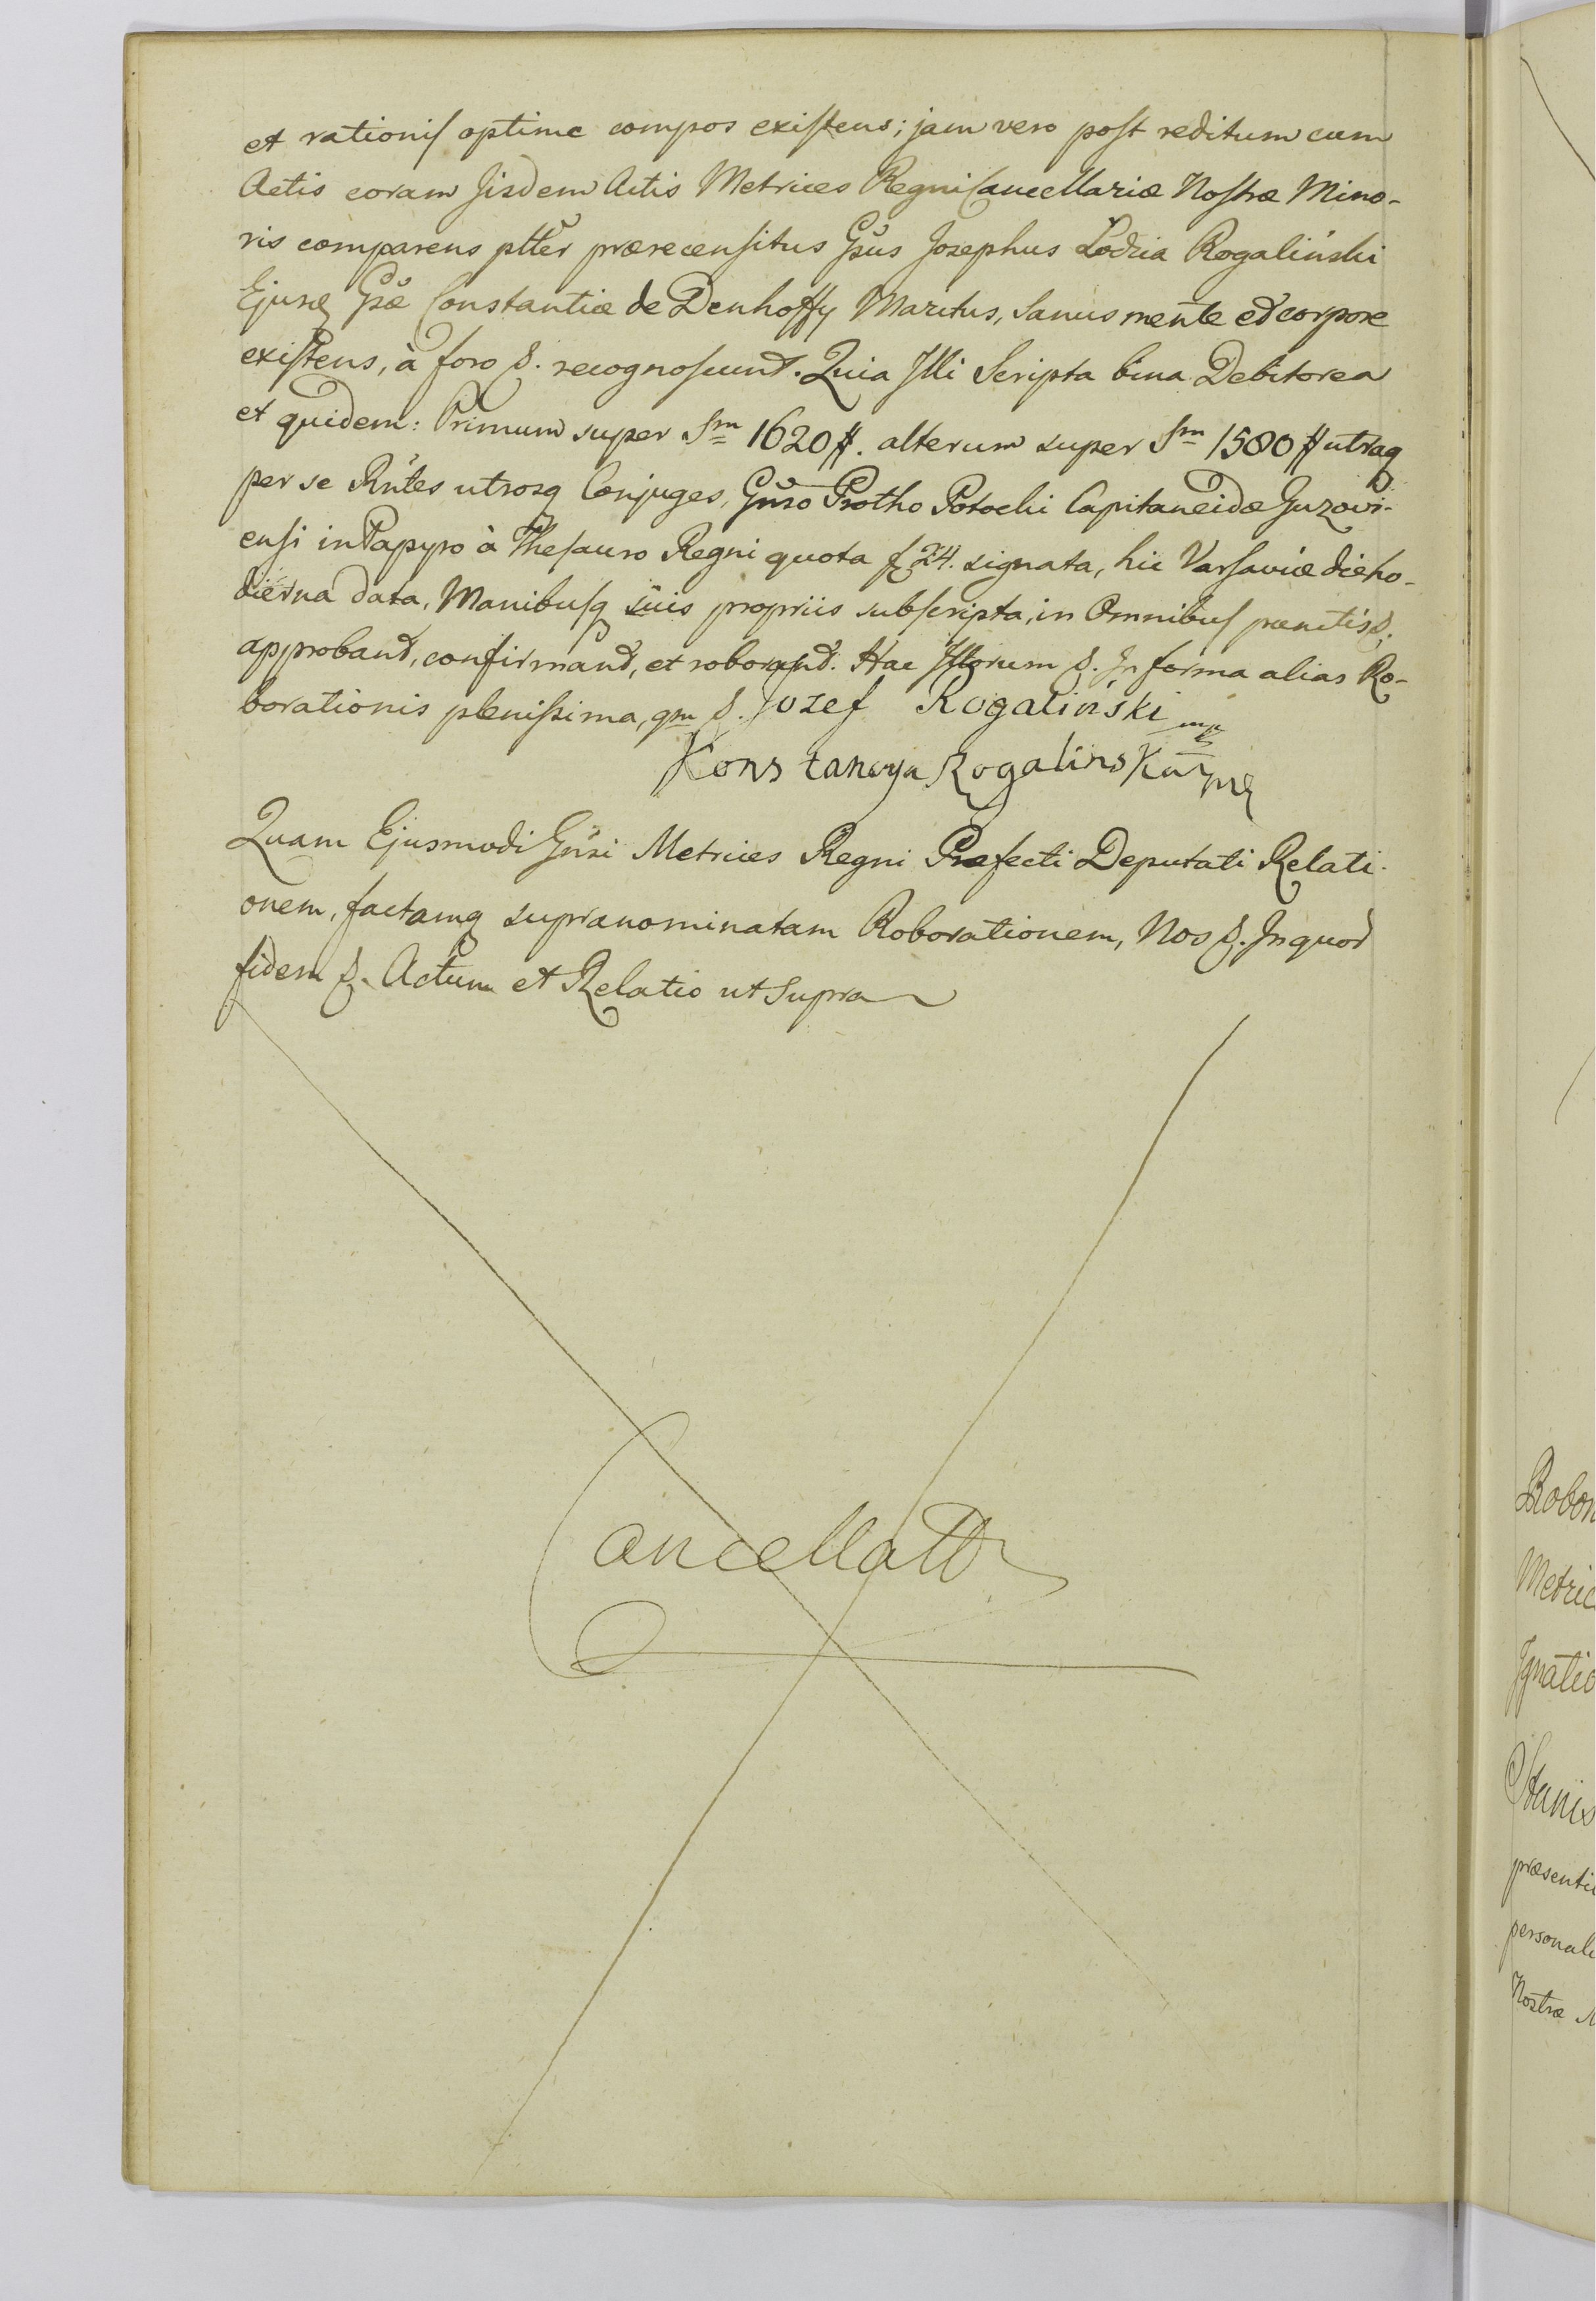 et rationis optime compos existens; jam vero post reditum cum
Actis coram Jisdem Actis Metrices Regni Cancellariæ Nostræ Mino-
ris comparens pltter prærecensitus Gsus Josephus Lodzia Rogaliński
Ejusq Gsæ Constantiæ de Denhoffy Maritus, Sanus mente et corpore
existens, à foro &. recognoscunt. Quia Illi Scripta bina Debitorea
et quidem: Primum super Sm 1620 #. alterum super Sm 1580 # utraq
per se Rntes utrosq Conjuges, Gnso Protho Potocki Capitaneidæ Guzovi-
ensi in Papyro à Thesauro Regni quota f 24. signata, hic Varsaviæ die ho-
dierna data, Manibusq suis propriis subscripta, in Omnibus punctis &.
approband, confirmand, et roborand. Hac Illorum &. In forma alias Ro-
borationis plenissima, qm &. Jozef Rogaliński mp
Konstancya Rogalinska mp
Quam Ejusmodi Gnsi Metrices Regni Præfecti Deputati Relati-
onem, factamq supranominatam Roborationem, Nos &. In quod
fidem &. Actum et Relatio ut Supra
Cancellatt
Robor
Metric
Ignatio
Stanis
præsenti
personali
Nostræ M